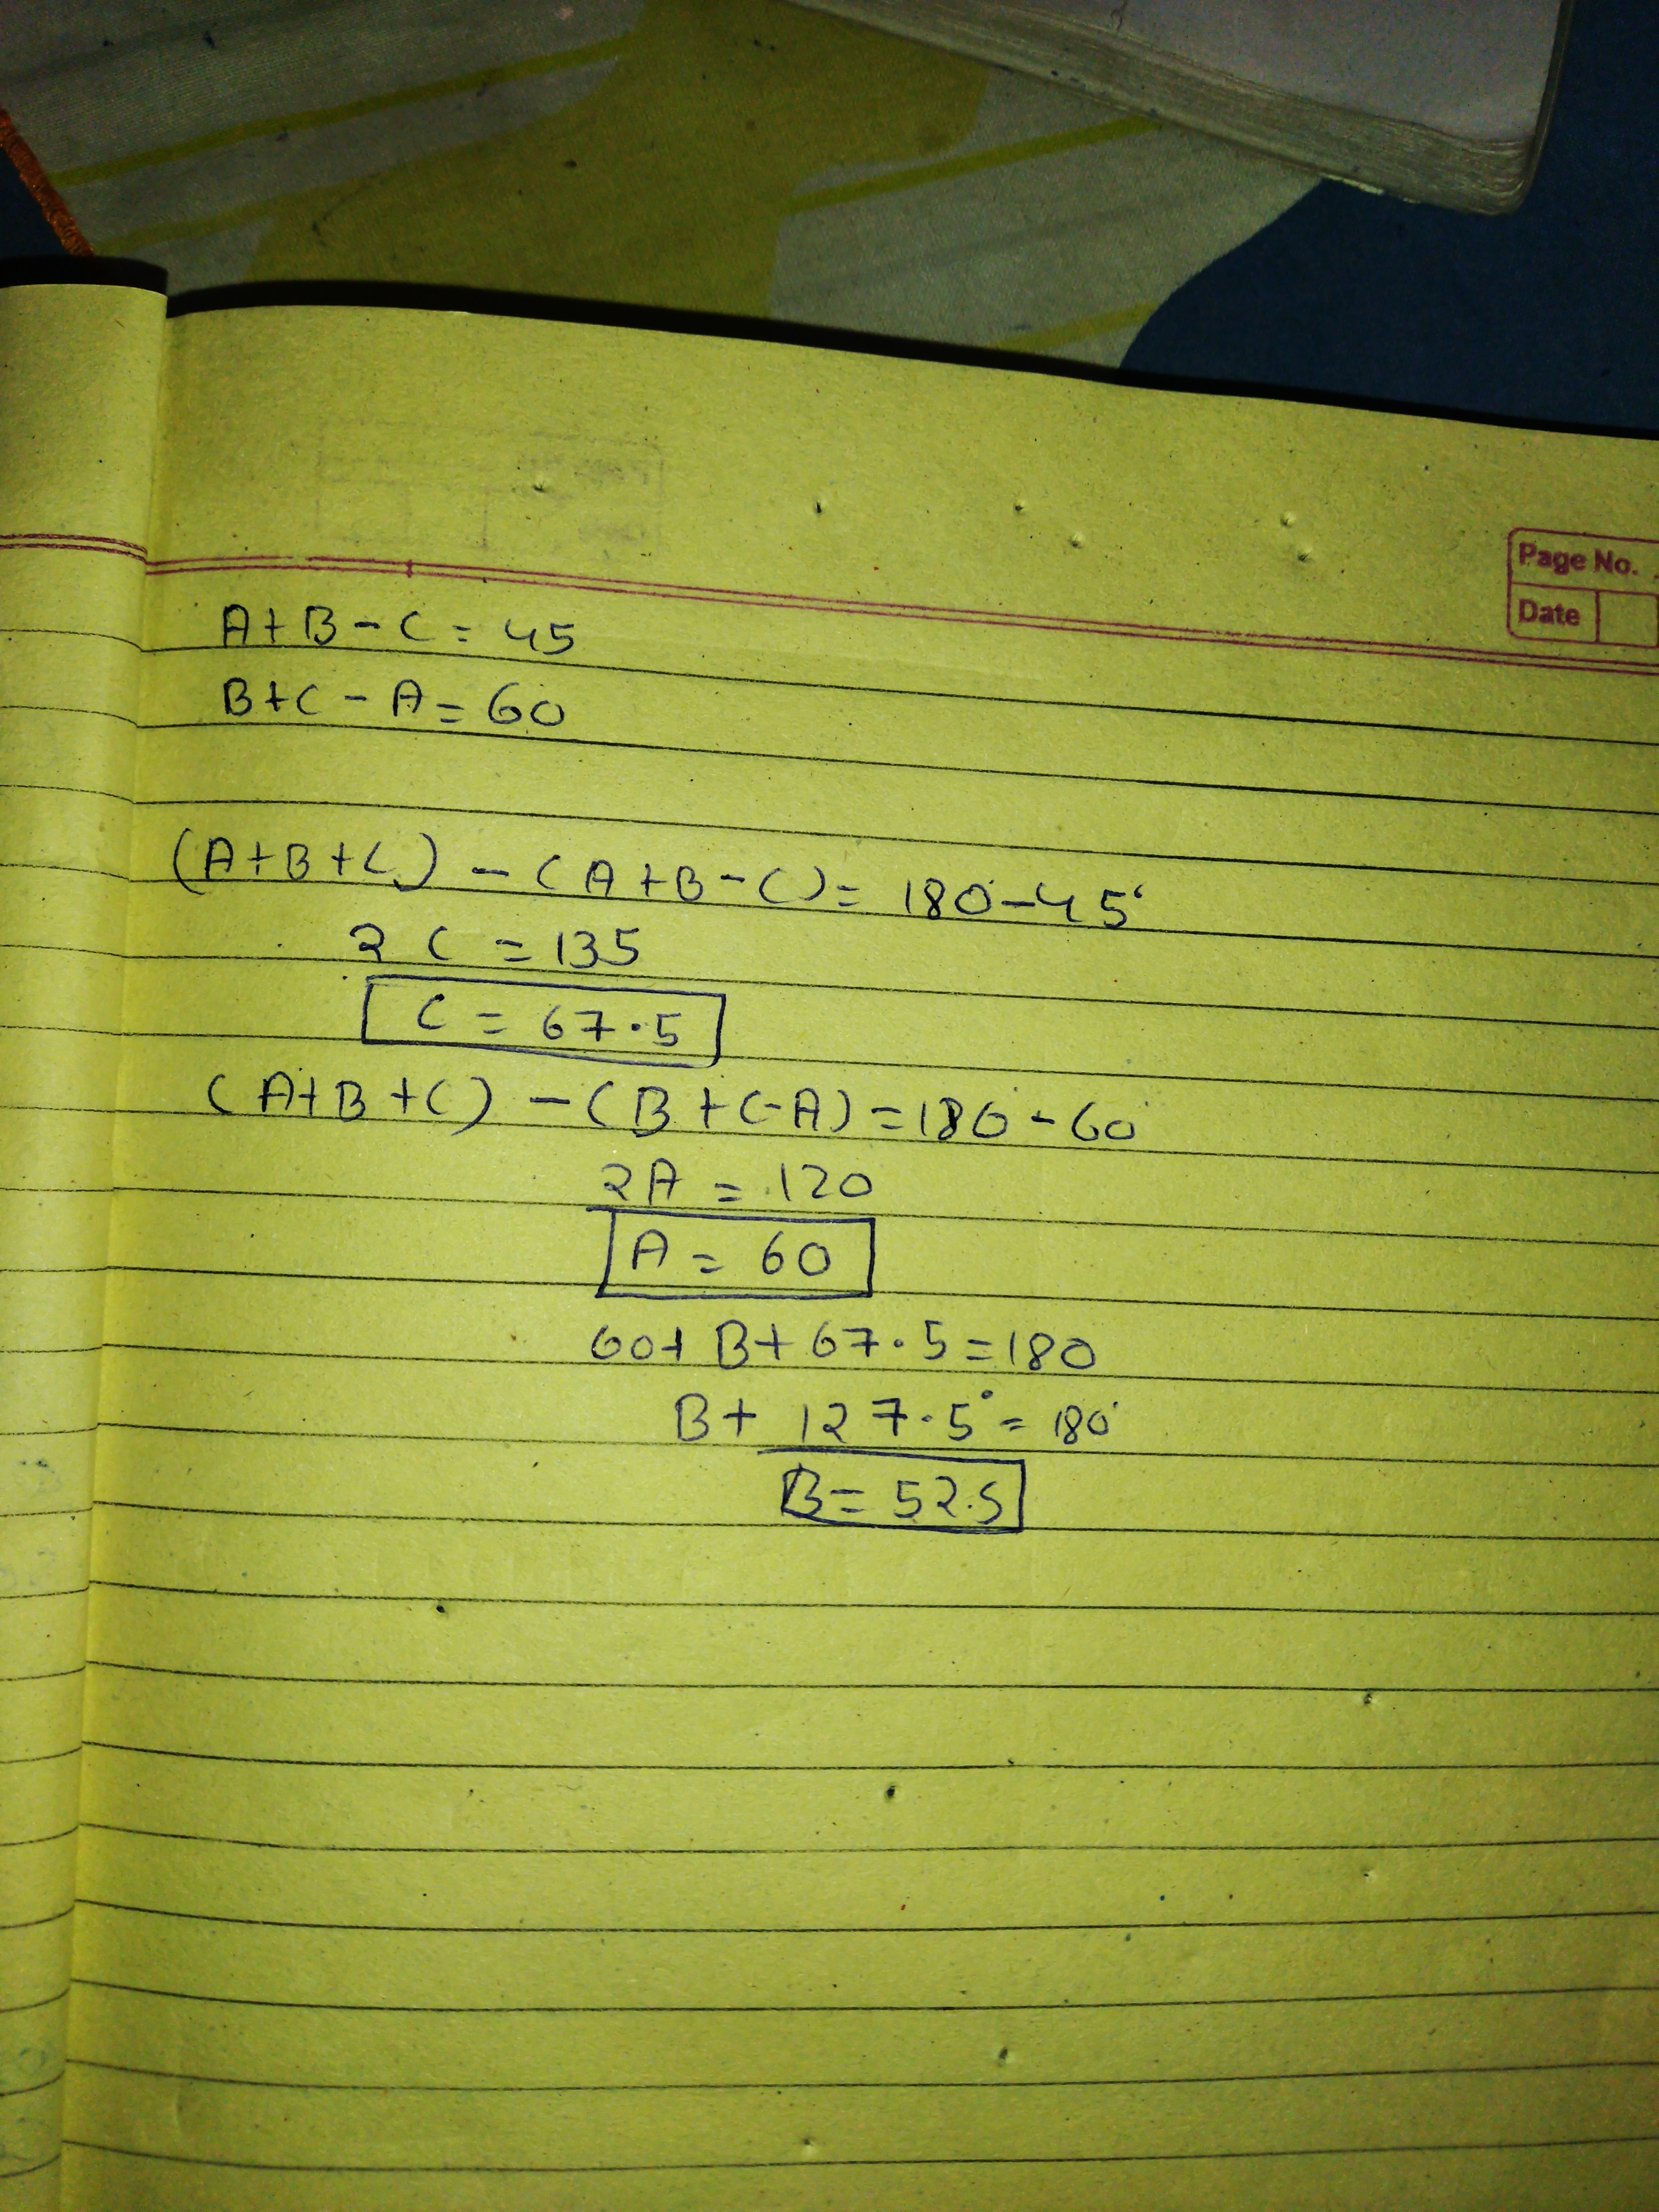 Page No.
Date
A+B-C=45
B+C-A=60
(A+B+C)-(A+B-C)=180-45°
2C=135
C=67.5
(A+B+C)-(B+C-A)=180-60
2A=120
A=60
60+B+67.5=180
B+127.5°=180°
B=52.5